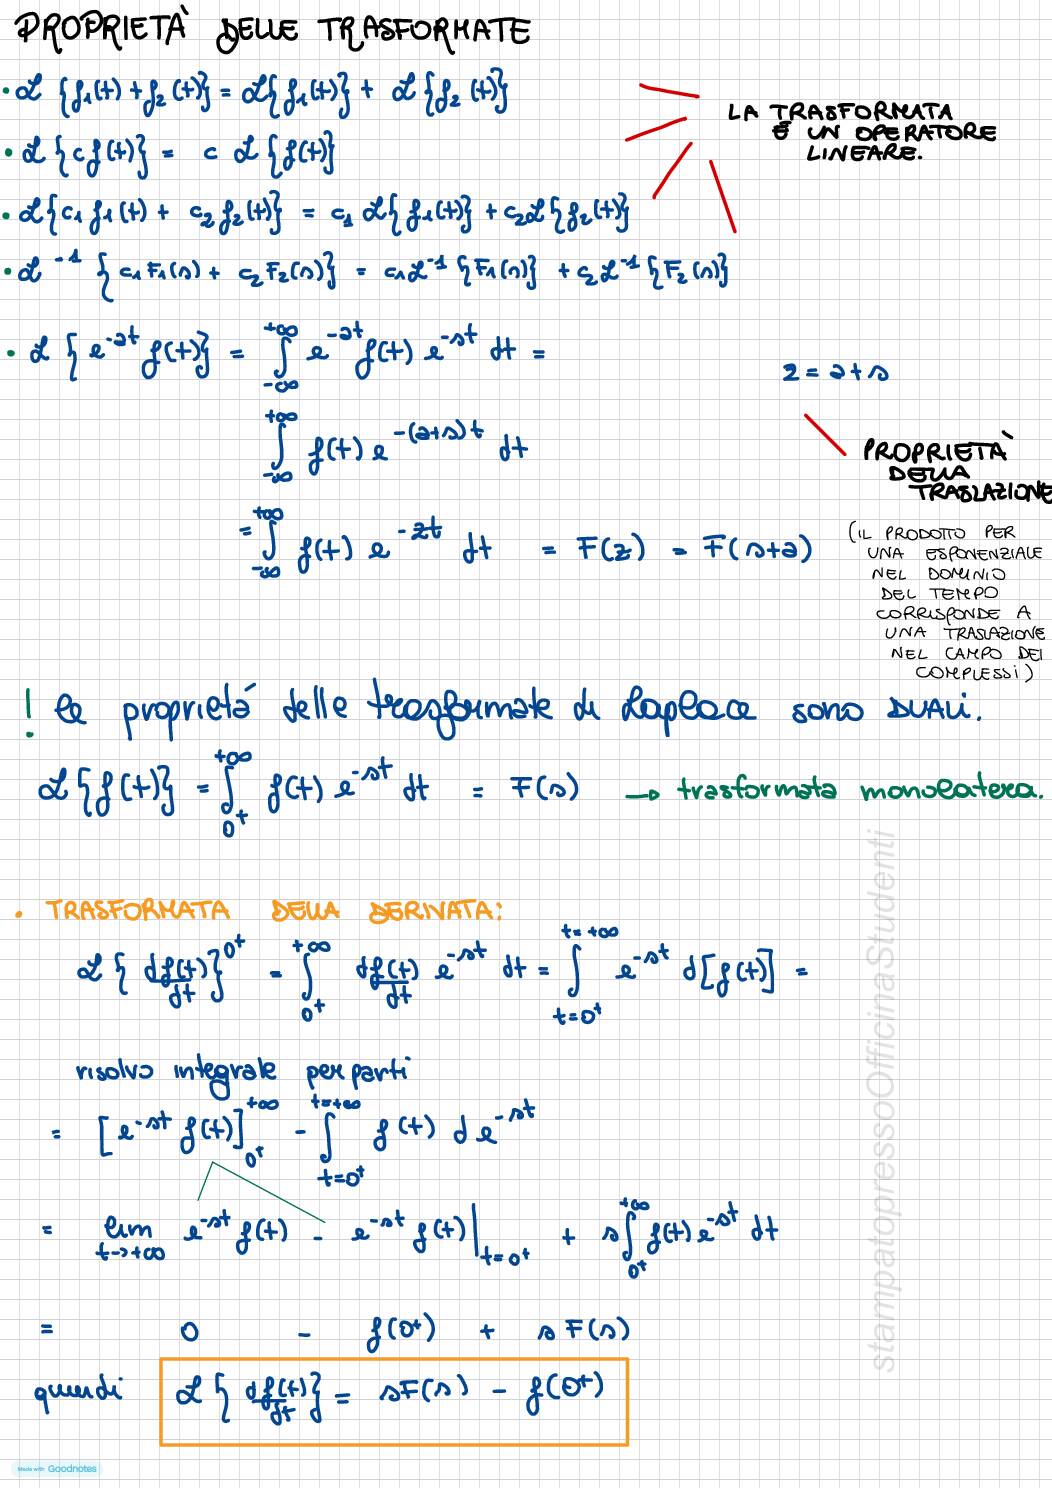 PROPRIETÀ DELLE TRASFORMATE
• ℒ {f₁(t) + f₂(t)} = ℒ{f₁(t)} + ℒ{f₂(t)}
• ℒ {c f(t)} = c ℒ {f(t)}
• ℒ{c₁ f₁(t) + c₂ f₂(t)} = c₁ ℒ{f₁(t)} + c₂ℒ{f₂(t)}
• ℒ⁻¹ {c₁ F₁(s) + c₂ F₂(s)} = c₁ℒ⁻¹ {F₁(s)} + c₂ ℒ⁻¹ {F₂(s)}
LA TRASFORMATA
È UN OPERATORE
LINEARE.
• ℒ {e^{-at} f(t)} = ∫_{-∞}^{+∞} e^{-at} f(t) e^{-st} dt =
∫_{-∞}^{+∞} f(t) e^{-(a+s)t} dt
= ∫_{-∞}^{+∞} f(t) e^{-zt} dt = F(z) = F(s+a)
z = a + s
PROPRIETÀ
DELLA
TRASLAZIONE
(IL PRODOTTO PER
UNA ESPONENZIALE
NEL DOMINIO
DEL TEMPO
CORRISPONDE A
UNA TRASLAZIONE
NEL CAMPO DEI
COMPLESSI)
! le proprietá delle trasformate di Laplace sono DUALI.
ℒ{f(t)} = ∫_{0⁺}^{+∞} f(t) e^{-st} dt = F(s) → trasformata monolatera.
• TRASFORMATA DELLA DERIVATA:
ℒ {df(t)/dt}^{0⁺} = ∫_{0⁺}^{+∞} df(t)/dt e^{-st} dt = ∫_{t=0⁺}^{t=+∞} e^{-st} d[f(t)] =
risolvo integrale per parti
= [e^{-st} f(t)]_{0⁺}^{+∞} - ∫_{t=0⁺}^{t=+∞} f(t) d e^{-st}
= lim_{t→+∞} e^{-st} f(t) - e^{-st} f(t)|_{t=0⁺} + s∫_{0⁺}^{+∞} f(t) e^{-st} dt
= 0 - f(0⁺) + s F(s)
quindi ℒ {df(t)/dt} = sF(s) - f(0⁺)
stampatopressoOfficinaStudenti
Made with Goodnotes